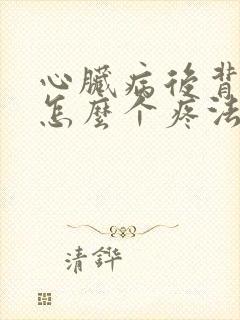 心臟病後背
怎麼个疼法
清鏵